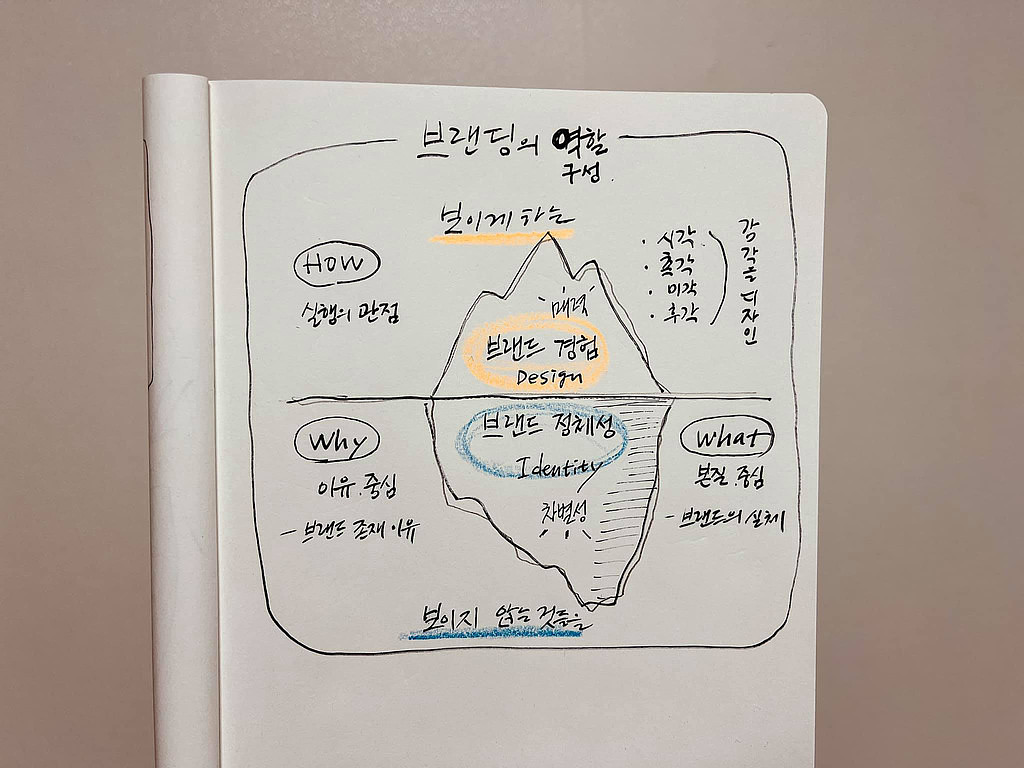 브랜딩의 역할
구성.
보이게 하는
How
실행의 관점
매력
브랜드 경험
Design
· 시각
· 촉각
· 미각
· 후각
감각을 디자인
브랜드 정체성
Identity
차별성
Why
이유.중심
- 브랜드 존재 이유
What
본질.중심
- 브랜드의 실체
보이지 않는 것들을